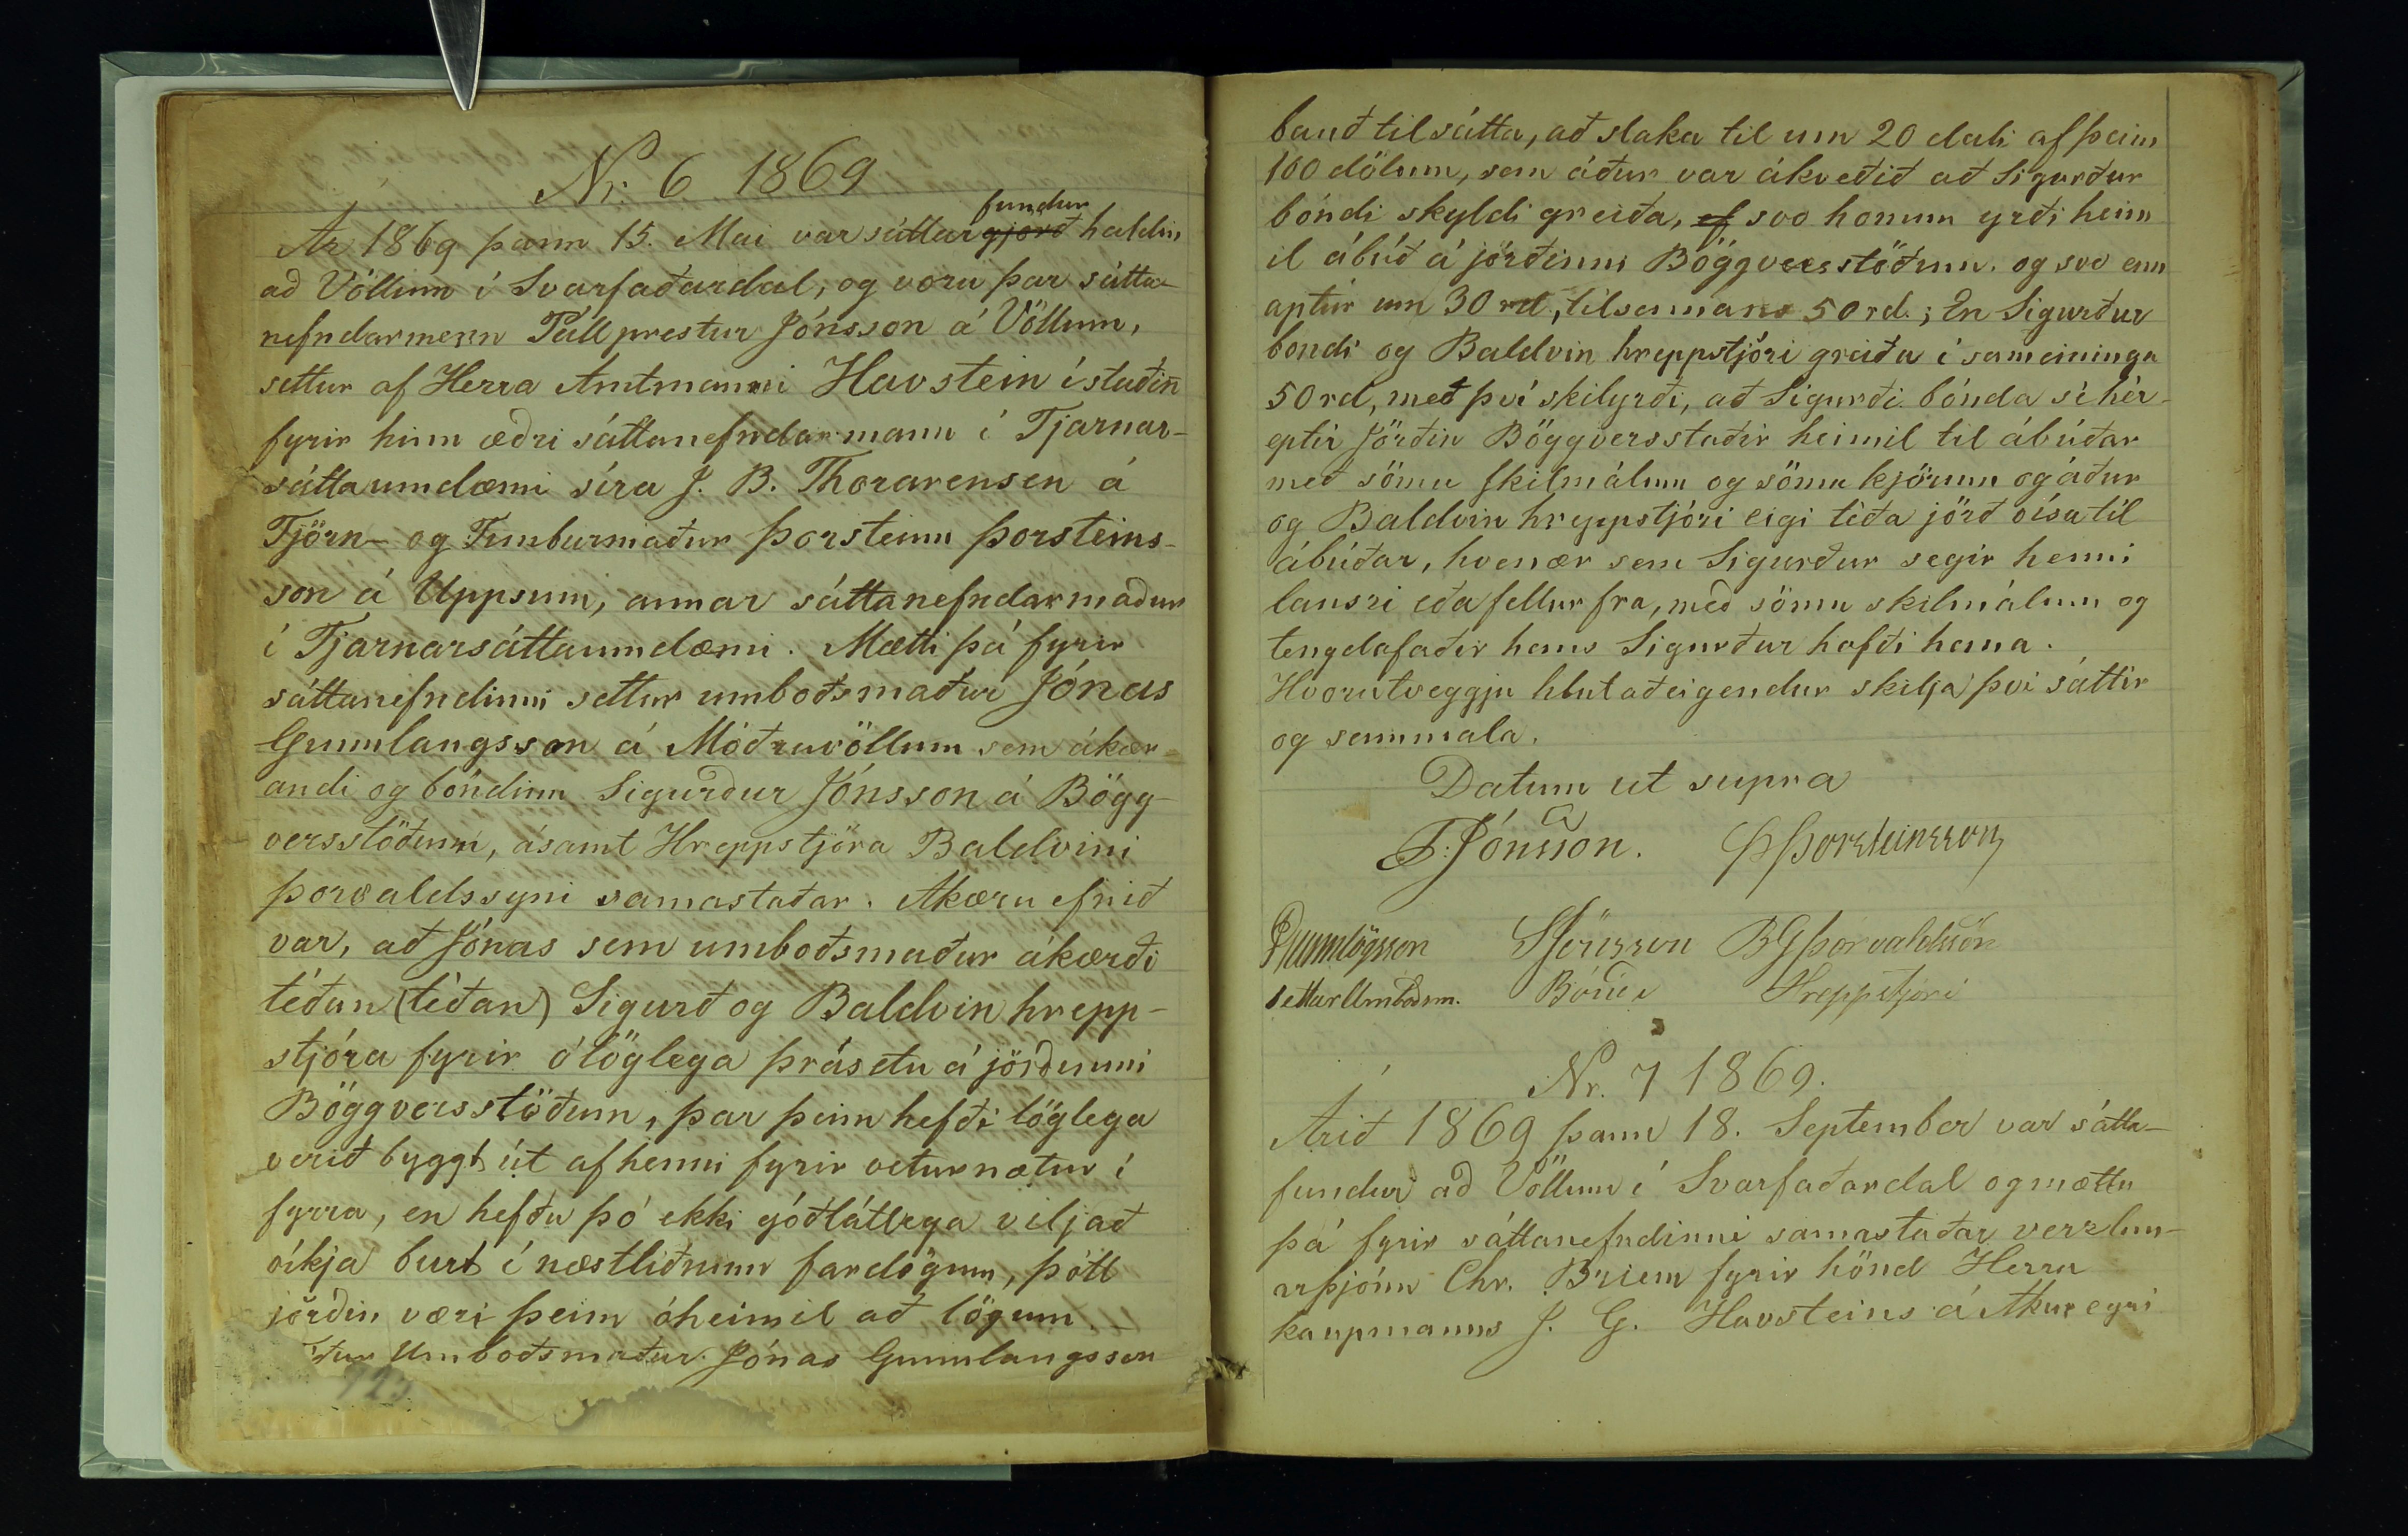 Nr. 6 1869
fundur
Ár 1869 þann 15. Mai var sáttargjörð haldin
að Völlum í Svarfaðardal, og voru þar sátta-
nefndarmenn Páll prestur Jónsson á Völlum,
settur af Herra Amtmanni Havstein í staðin
fyrir hinn æðri sáttanefndarmann í Tjarnar-
sáttaumdæmi síra J. B. Thorarensen á
Tjörn - og Timburmaður Þorsteinn Þorsteins-
son á Uppsum, annar sáttanefndarmaður
í Tjarnarsáttaumdæmi. Mætti þá fyrir
sáttanefndinni settur umboðsmaður Jónas
Gunnlaugsson á Möðruvöllum sem ákær-
andi og bóndinn Sigurður Jónsson á Bögg-
versstöðum, ásamt Hreppstjóra Baldvini
Þorvaldssyni samastaðar. Akæru efnið
var, að Jónas sem umboðsmaður ákærði
téðan (téðan) Sigurð og Baldvin hrepp-
stjóra fyrir ólöglega þrásetu á jörðunni
Böggversstöðum, þar þeim hefði löglega
verið byggt út af henni fyrir veturnætur í
fyrra, en hefðu þó ekki góðlátlega viljað
víkja burt í næstliðnum fardögum, þótt
jörðin væri þeim óheimil að lögum. -
Umboðsmaður Jónas Gunnlaugsson
923
bauð til sátta, að slaka til um 20 dali af þeim
100 dölum, sem áður var ákveðið að Sigurður
bóndi skyldi greiða, ef svo honum yrði heim
il ábúð á jörðinni Böggversstöðum. og svo enn
aptur um 30 rd, tilsammans 50 rd.; En Sigurður
bondi og Baldvin hreppstjóri greiða í sameiningu
50 rd, með því skilyrði, að Sigurði bónda sé hér-
eptir Jörðin Böggversstaðir heimil til ábúðar
með sömu skilmálum og sömu kjörum og áður
og Baldvin hreppstjóri eigi téða jörð vísa til
ábúðar, hvenær sem Sigurður segir henni
lausri eða fellur fra, með sömu skilmálum og
tengdafaðir hans Sigurður hafði hana.
Hvorutveggju hlutaðeigendur skilja því sáttir
og sammála.
Datum ut supra
P. Jónsson. Þ Þorsteinsson
JGunnlögsson SJónsson BGÞorvaldsson
settur Umboðsm. Bóndi Hreppstjóri
Nr. 7 1869.
Árið 1869 þann 18. September var sátta-
fundur að Völlum í Svarfaðardal og mættu
þá fyrir sáttanefndinni samastaðar verzlun-
arþjónn Chr. Briem fyrir hönd Herra
kaupmanns J. G. Havsteins á Akureyri